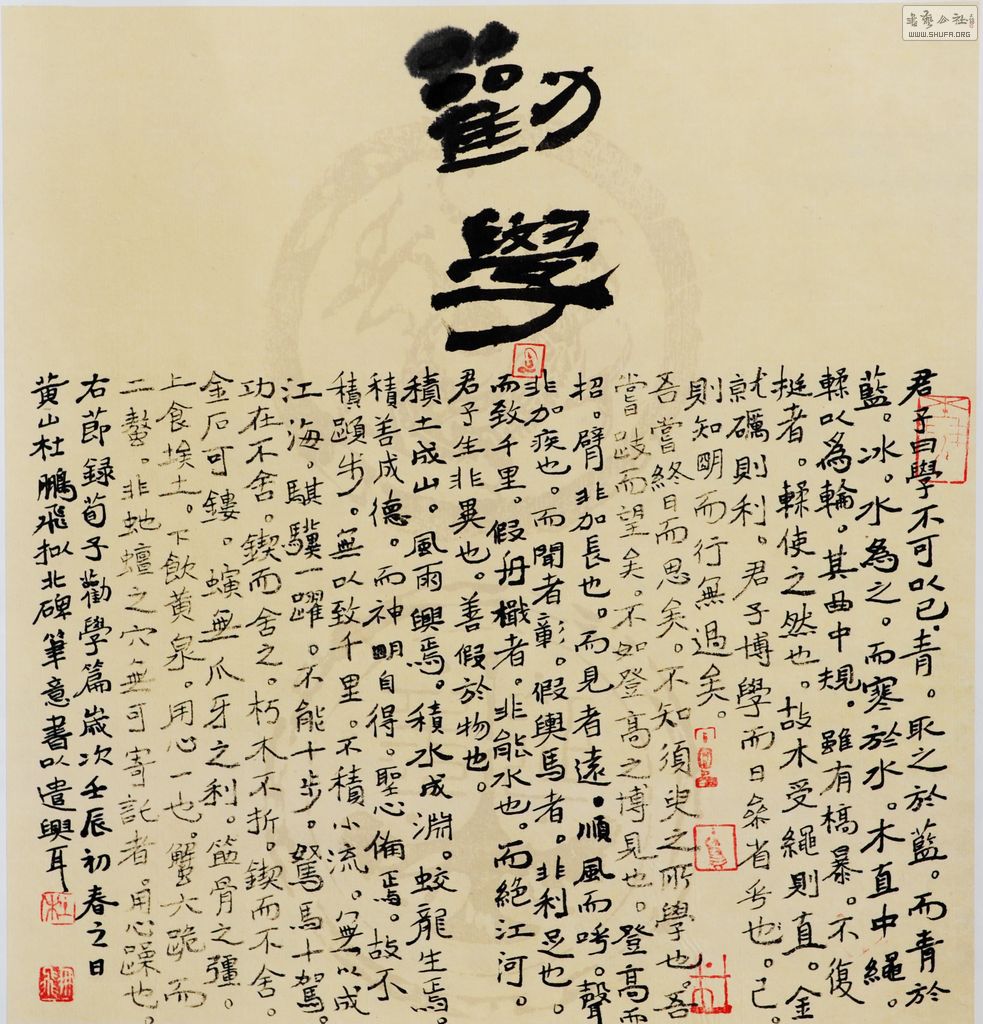 勸學
君子曰學不可以已.青。取之於藍。而青於
藍。冰。水為之。而寒於水。木直中繩。
輮以爲輪。其曲中規。雖有槁暴。不復
挺者。輮使之然也。故木受繩則直。金
就礪則利。君子博學而日參省乎也。己。
則知明而行無過矣。
吾嘗終日而思矣。不知須臾之所學也。吾
嘗跂而望矣。不如登高之博見也。登高而
招。臂非加長也。而見者遠.順風而呼。聲
非加疾也。而聞者彰。假輿馬者。非利足也。
而致千里。假舟檝者。非能水也。而絕江河。
君子生非異也。善假於物也。
積土成山。風雨興焉。積水成淵。蛟龍生焉。
積善成德。而神明自得。聖心備焉。故不
積蹞步。無以致千里。不積小流。無以成
江海。騏驥一躍。不能十步。駑馬十駕。
功在不舍。鍥而舍之。朽木不折。鍥而不舍。
金石可鏤。螾無爪牙之利。筋骨之彊。
上食埃土。下飲黃泉。用心一也。蟹六跪而
二螯。非虵蟺之穴無可寄託者。用心躁也。
右節錄荀子勸學篇歲次壬辰初春之日
黃山杜鵬飛拟北碑筆意書以遣興耳
書藝公社
WWW.SHUFA.ORG